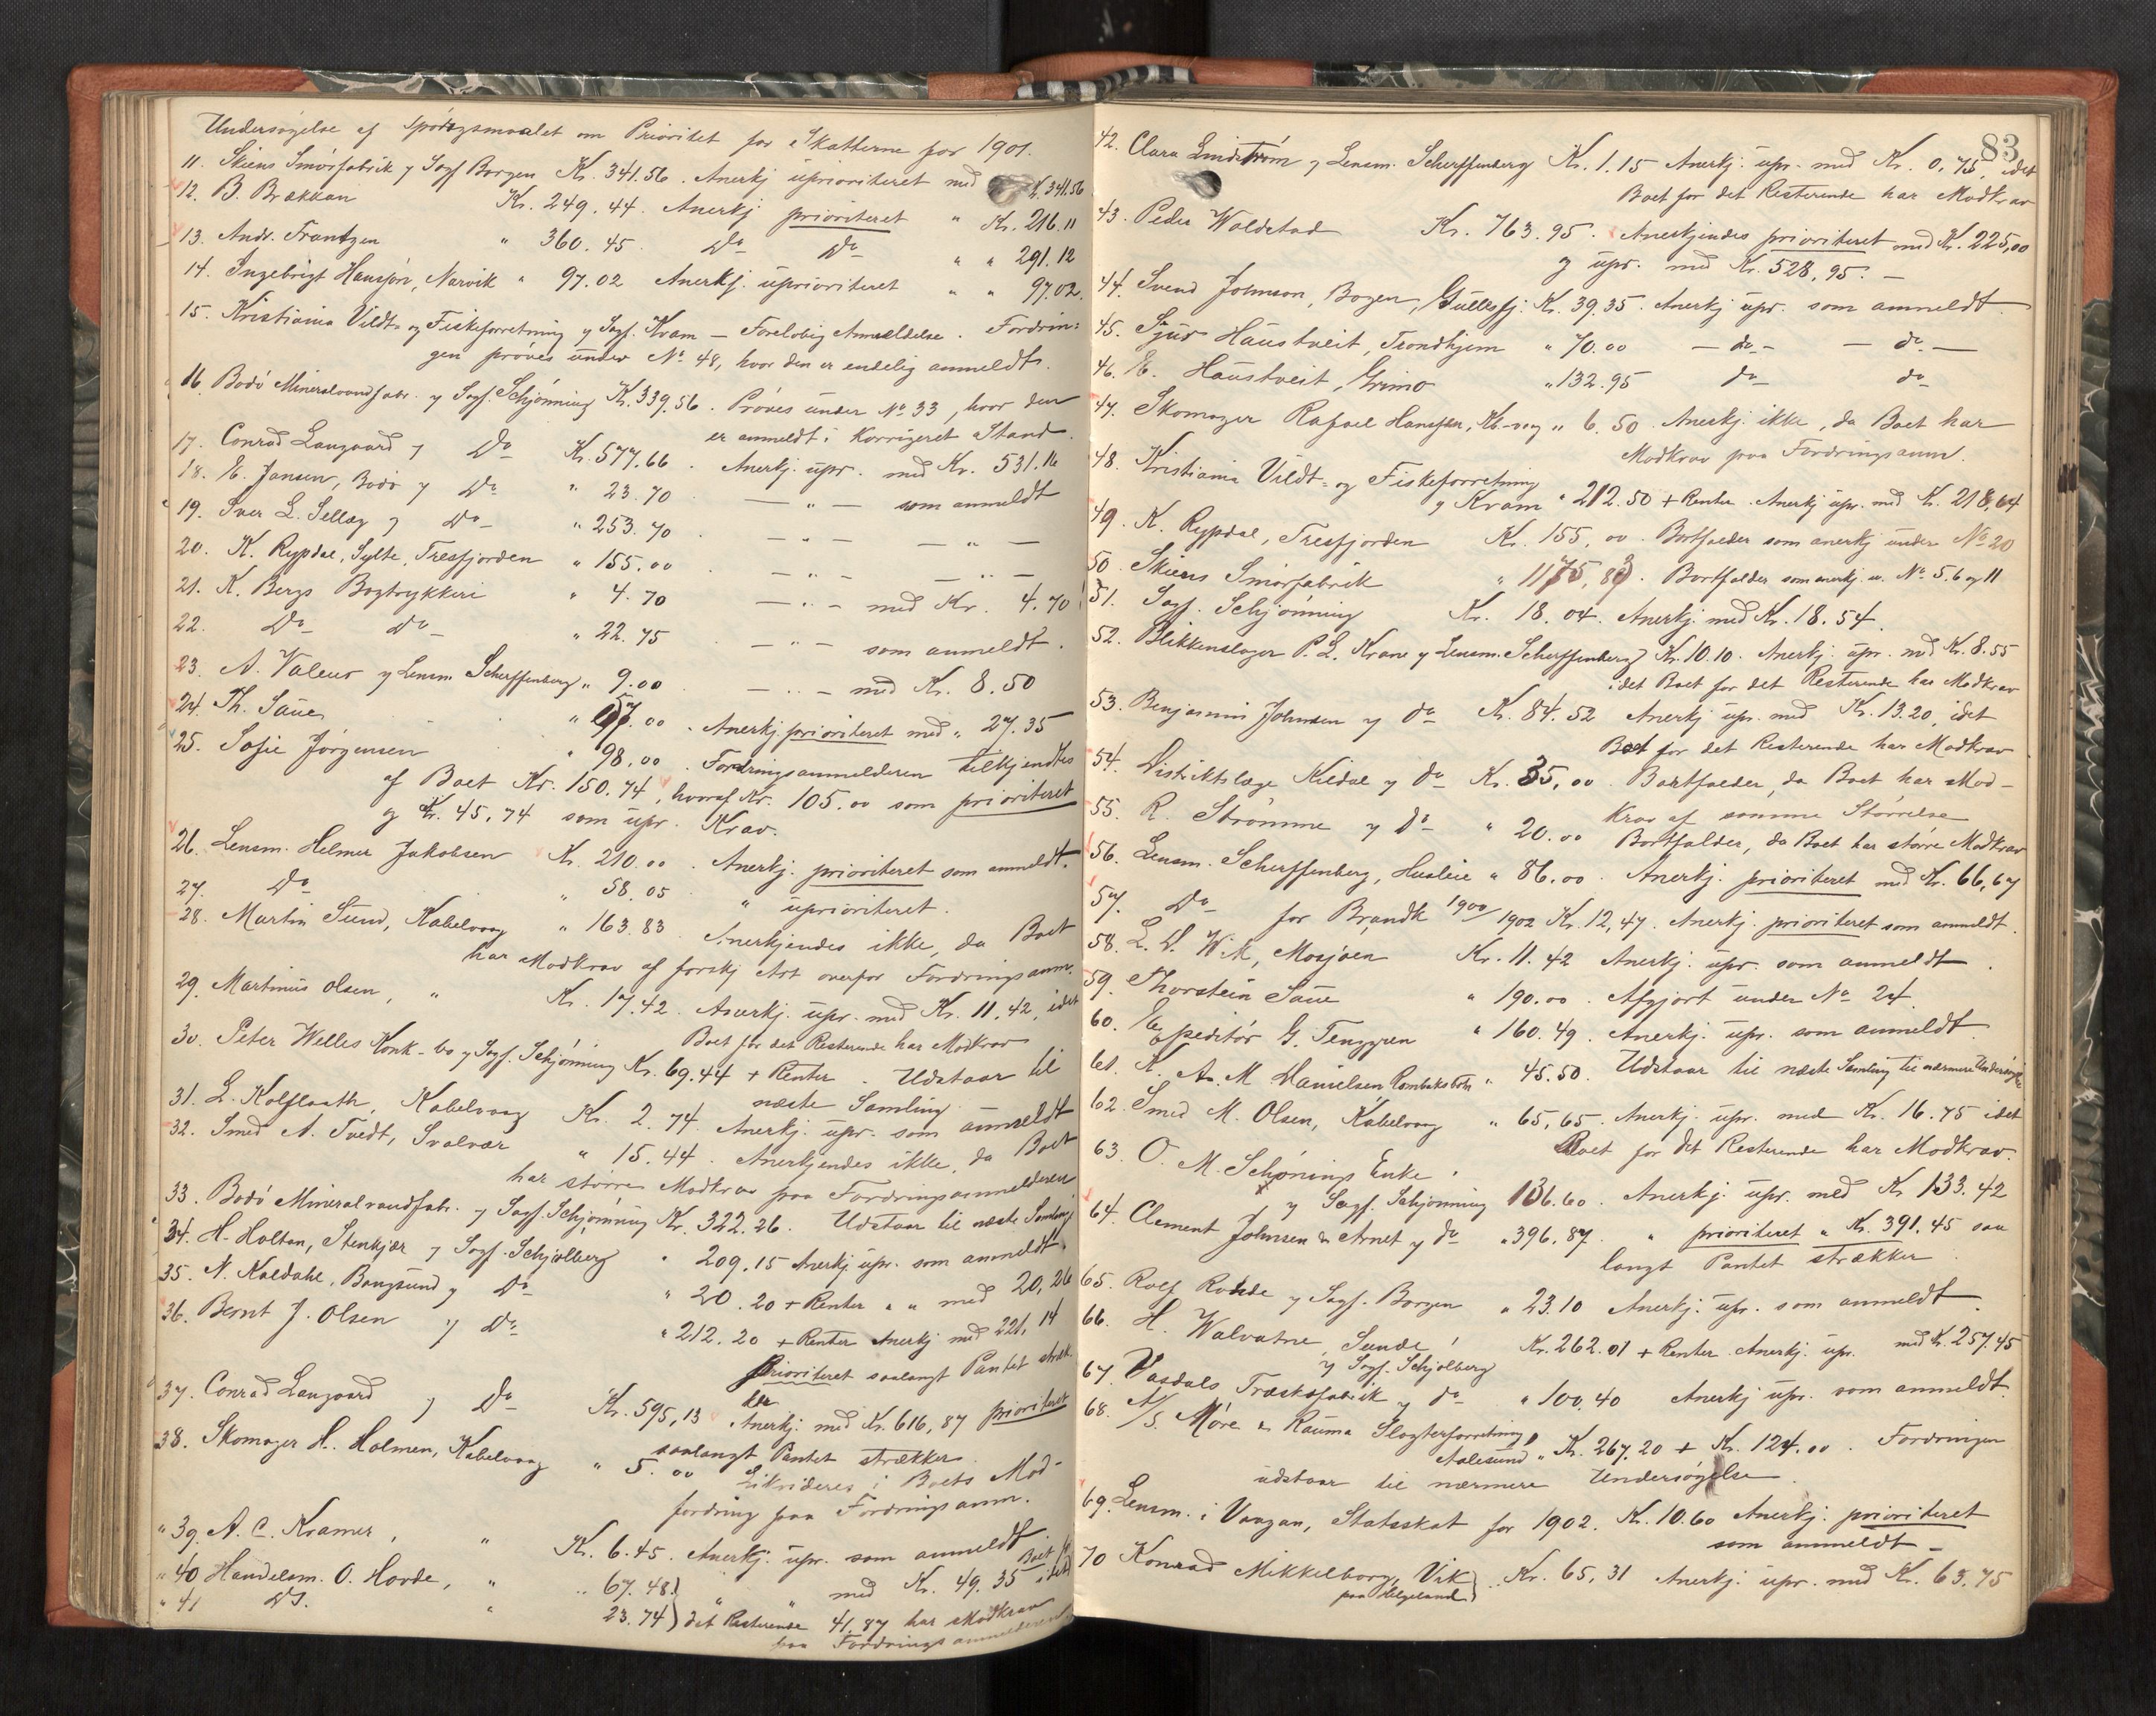 Undersøgelse af Spørgsmaalet om Prioritet for Skatterne for 1901.
11. Skiens Smørfabrik v Sagf Borgen Kr. 341.56. Anerkj upriioriteret med Kr. 341.56
12. B. Brækkan Kr. 249.44. Anerkj prioriteret " Kr. 216.11
13. Andr. Frantzen " 360.45. Do Do " " 291.12
14. Ingebrigt Hansjøn, Narvik " 97.02 Anerkj. uprioriteret " " 97.02.
15. Kristiania Vildt- og Fiskeforretning v Sagf. Kram – Foreløbig Anmeldelse. Fordrin-
gen prøves under No. 48, hvor den er endelig anmeldt.
16. Bodø Mineralvandfabr. v Sagf. Schjønning Kr. 339.56. Prøves under No. 33, hvor den
er anmeldt i korrigeret Stand.
17. Conrad Langaard v Do Kr. 577.66. Anerkj. upr. med Kr. 531.16
18. E. Jansen, Bodø v Do " 23.70 — " — som anmeldt
19. Iver L. Selläg v Do " 253.70. — " — — " —
20. K. Rypdal, Sylte, Tresfjorden " 155.00. — " — — " —
21. K. Bergs Bogtrykkeri " 4.70 — " — med Kr. 4.70
22. Do Do " 22.75 — " — som anmeldt.
23. A. Valeur v Lensm. Scherffenberg " 9.00. — " — med Kr. 8.50
24. Th. Saue " 57.00. Anerkj. prioriteret med " 27.35
25. Sofie Jørgensen " 98.00. Fordringsanmelderen tilkjendtes
af Boet Kr. 150.74, hvoraf Kr. 105.00 som prioriteret
og Kr. 45.74 som upr. Krav.
26. Lensm. Helmer Jakobsen Kr. 210.00. Anerkj. prioriteret som anmeldt.
27. Do " 58.05 " uprioriteret.
28. Martin Sund, Kabelvaag " 163.83 Anerkjendes ikke, da Boet
har Modkrav af forskj Art overfor Fordringsanm.
29. Martinus Olsen, " Kr. 17.42. Anerkj. upr. med Kr. 11.42, idet
Boet for det Resterende har Modkrav
30. Peter Welles Konk-bo v Sagf. Schjønning Kr. 69.44 + Renter. Udstaar til
næste Samling.
31. L. Kolflaath, Kabelvaag Kr. 2.74. Anerkj. upr. som anmeldt
32. Smed A. Tvedt, Svolvær " 15.44. Anerkjendes ikke, da Boet
har større Modkrav paa Fordringsanmelderen
33. Bodø Mineralvandfabr. v Sagf. Schjønning Kr. 322.26. Udstaar til næste Samling
34. H. Holtan, Stenkjær v Sagf. Schjølberg " 209.15 Anerkj upr. som anmeldt
35. N. Kaldahl, Bangsund v Do " 20.20 + Renter " " med 20,26
36. Bernt J. Olsen v Do " 212.20 + Renter Anerkj med 221,14
prioriteret saalangt Pantet stræk-
ker
37. Conrad Langaard v Do Kr. 595,13 Anerkj. med Kr. 616,87 prioriteret
saalangt Pantet strækker.
38. Skomager H. Holmen, Kabelvaag " 5.00 Likvideres i Boets Mod-
fordring paa Fordringsanm.
39. A. C. Kramer, " Kr. 6.45. Anerkj. upr. som anmeldt
40 Handelsm. O. Hovde, " " 67.48) " " med Kr. 49.35 idet Boet for
41 Do. " 23.74) det Resterende 41.87 har Modkrav
paa Fordringsanmelderen
83
42. Clara Lindstrøm v Lensm. Scherffenberg Kr. 1.15 Anerkj. upr. med Kr. 0,75, idet
Boet for det Resterende har Modkrav
43. Peder Woldstad Kr. 763.95. Anerkjendes prioriteret med Kr. 225,00
og upr. med Kr. 528,95. –
44. Svend Johnson, Bogen, Gullesfj. Kr. 39.35. Anerkj upr. som anmeldt.
45. Sjur Haustveit, Trondhjem " 70.00 — do — — do —
46. E. Haustveit, Grimo " 132.95 do do
47. Skomager Rafael Hanssen, Kb-vaag " 6.50. Anerkj. ikke, da Boet har
Modkrav paa Fordringsanm.
48. Kristiania Vildt- og Fiskeforretning
v Kram " 212.50 + Renter. Anerkj upr. med Kr. 218,64
49. K. Rypdal, Tresfjorden Kr. 155,00. Bortfalder som anerkj under No 20
50. Skiens Smørfabrik " 1175,83. Bortfalder som anerkj. u. No. 5.6 og 11
51. Sagf. Schjønning Kr. 18.04. Anerkj. med Kr. 18.54.
52. Blikkenslager P. L. Krane v Lensm. Scherffenberg Kr. 10.10. Anerkj. upr. med Kr. 8.55
idet Boet for det Resterende har Modkrav
53. Benjamin Johnsen v do Kr. 84.52 Anerkj upr. med Kr. 13.20, idet
Boet for det Resterende har Modkrav
54. Distriktslæge Kildal v do Kr. 35,00. Bortfalder, da Boet har Mod-
krav af samme Størrelse
55. R. Strømme v do " 20.00 Bortfalder, da Boet har større Modkrav
56. Lensm. Scherffenberg, Husleie " 86.00. Anerkj. prioriteret med Kr. 66,67
57. Do for Brandk 1900/1902 Kr. 12,47. Anerkj. prioriteret som anmeldt.
58. L. D. Wik, Mosjøen Kr. 11.42 Anerkj. upr. som anmeldt.
59. Thorstein Saue " 190.00. Afgjort under No 24.
60. Expeditør G. Tenggren " 160.49. Anerkj. upr. som anmeldt
61. K. A. M Danielsen, Rombaksbotn " 45.50. Udstaar til næste Samling til nærmere Undersøgelse
62. Smed M. Olsen, Kabelvaag " 65,65. Anerkj. upr. med Kr. 16.75 idet
Boet for det Resterende har Modkrav.
63. O. M. Schønings Enke
v Sagf. Schjønning 136.60. Anerkj. upr. med Kr 133.42
64. Clement Johnsen & Arnet v do " 396.87. " prioriteret " Kr. 391.45 saa
langt Pantet strækker.
65. Rolf Rohde v Sagf. Borgen " 23.10 Anerkj. upr. som anmeldt.
66. H. Walvatne, Sunde,
v Sagf. Schjølberg Kr. 262.01 + Renter. Anerkj. upr. med Kr. 257.45
67. Vasdals Træskofabrik v do " 100.40 Anerkj upr. som anmeldt.
68. A/S. Møre & Rauma Slagterforretning,
Aalesund " Kr. 267.20 + Kr. 124.00. Fordringen
udstaar til nærmere Undersøgelse.
69. Lensm. i Vaagan, Statsskat for 1902. Kr. 10.60 Anerkj. prioriteret
som anmeldt –
70 Konrad Mikkelborg, Vik
paa Helgeland) Kr. 65,31 Anerkj. upr. med Kr. 63.75